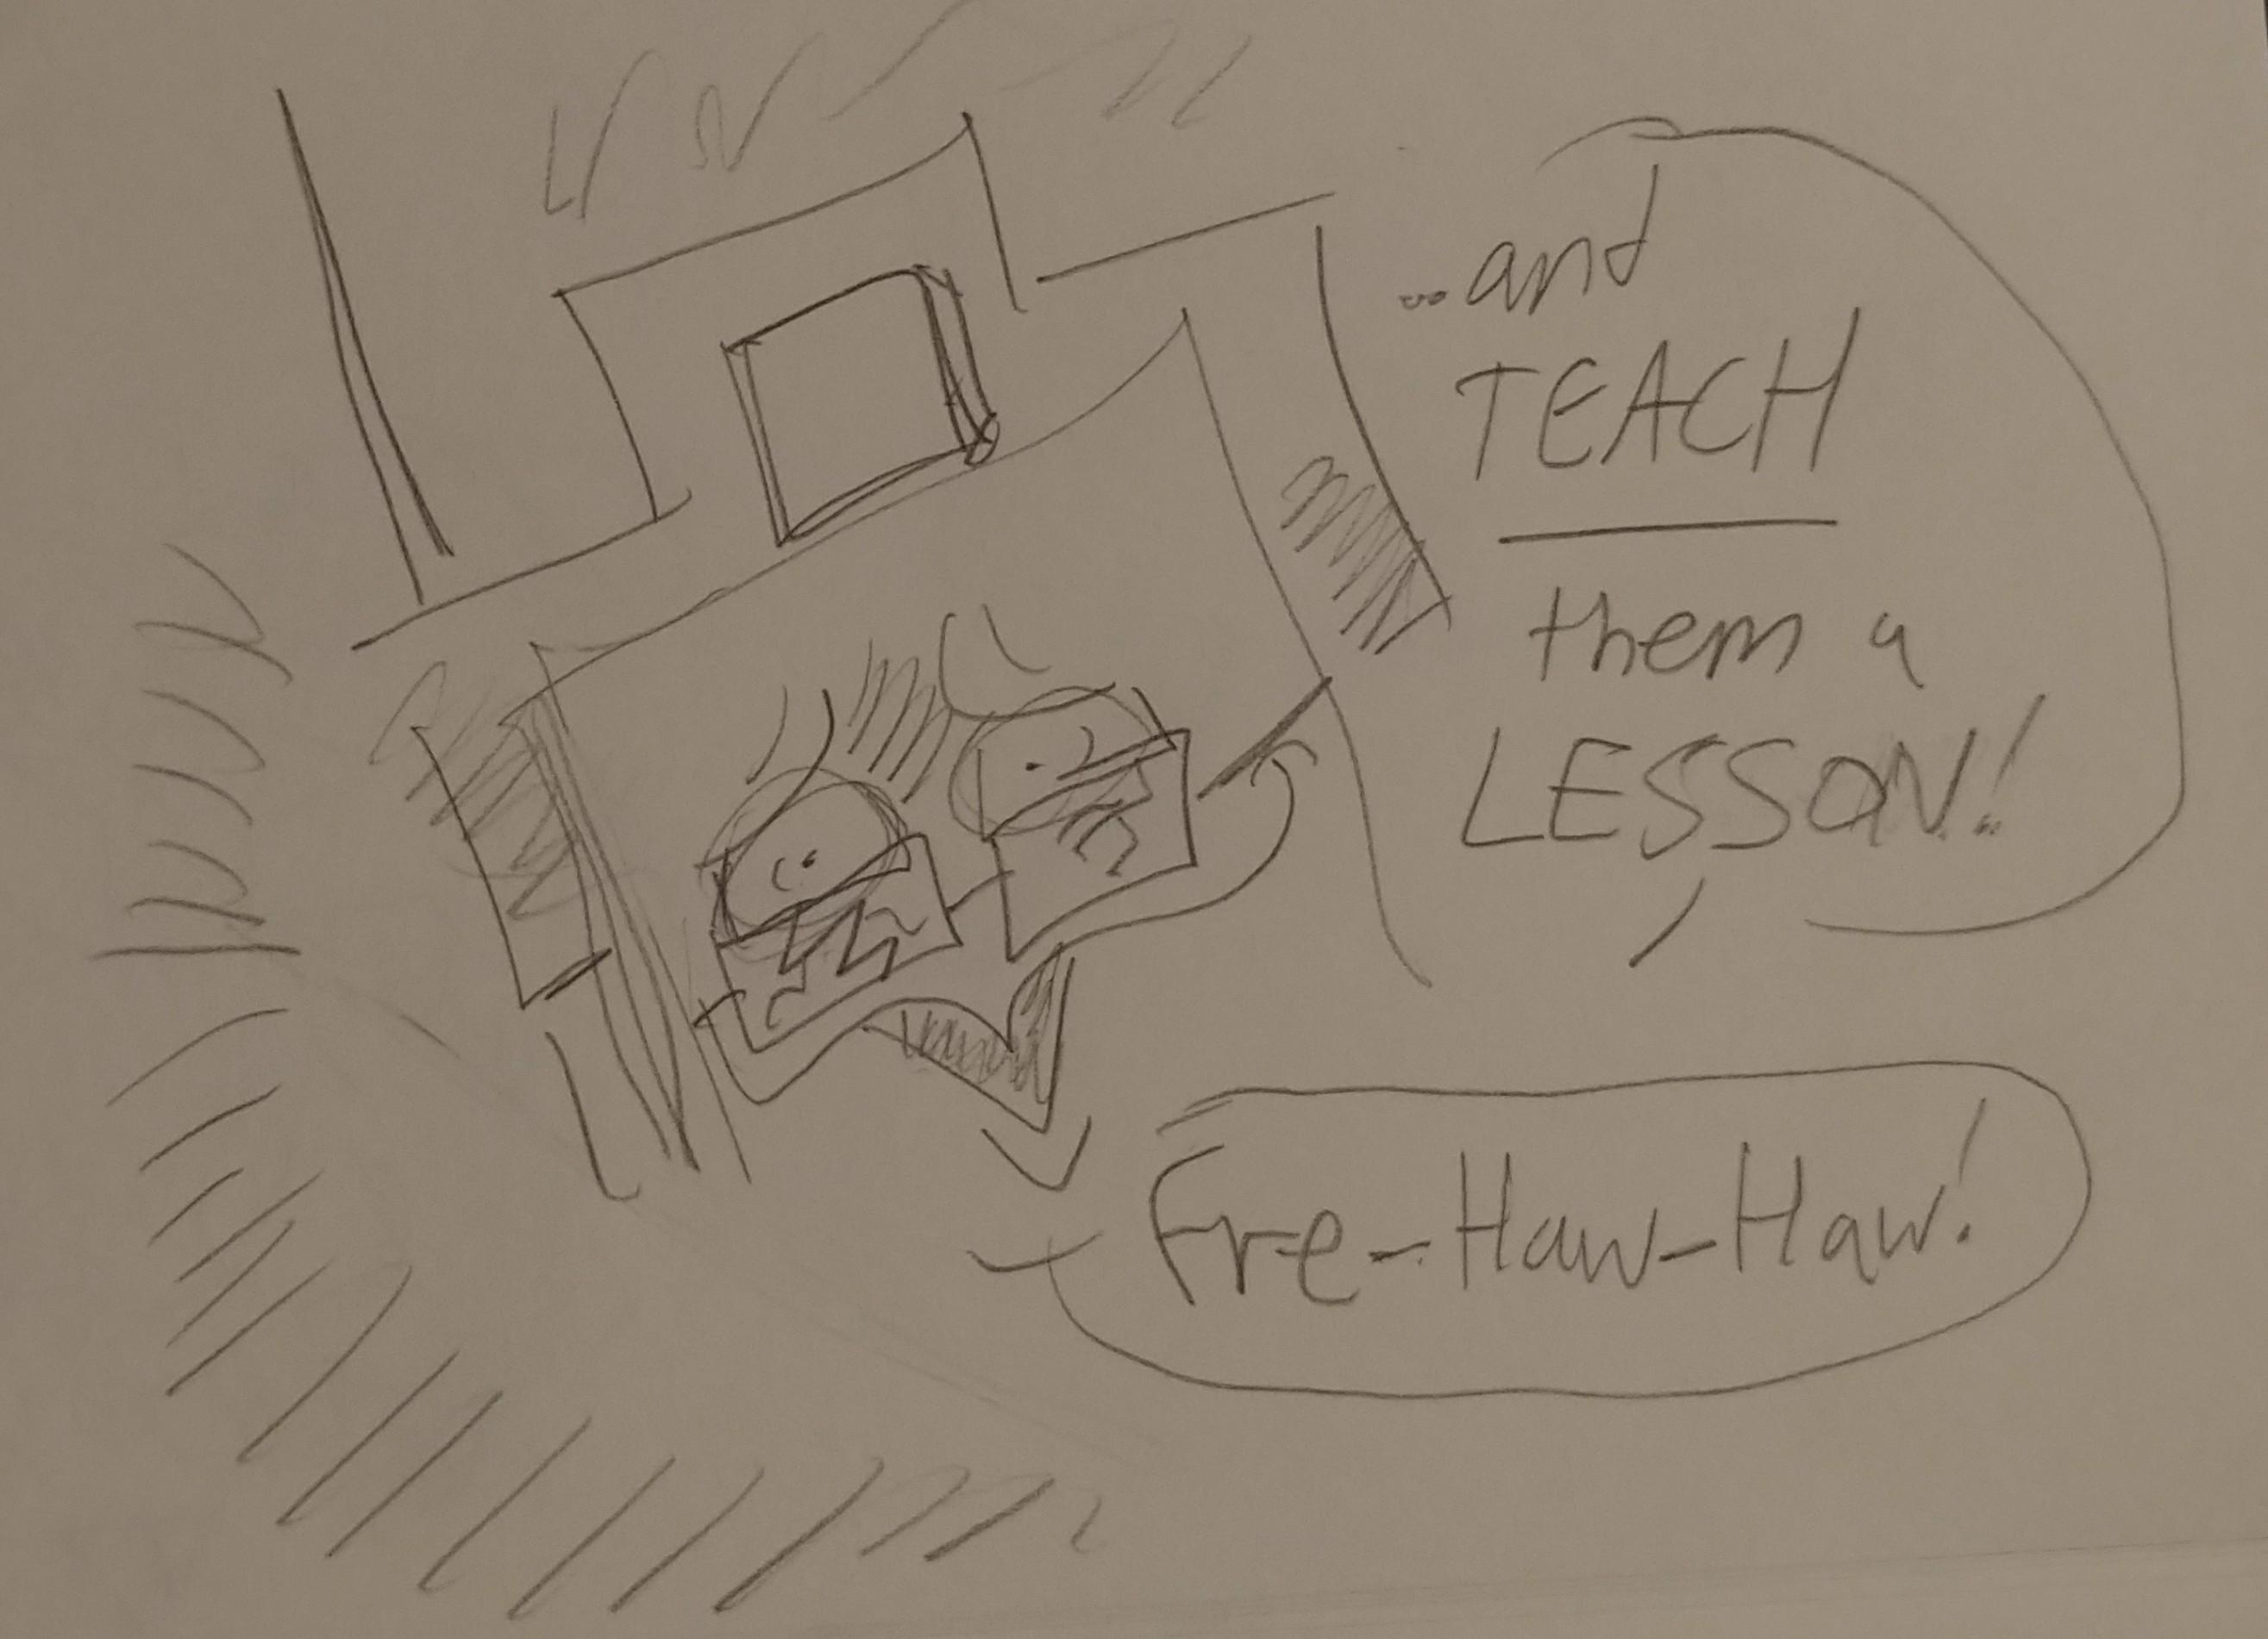 ..and
TEACH
them a
LESSON!
Fre-Haw-Haw!